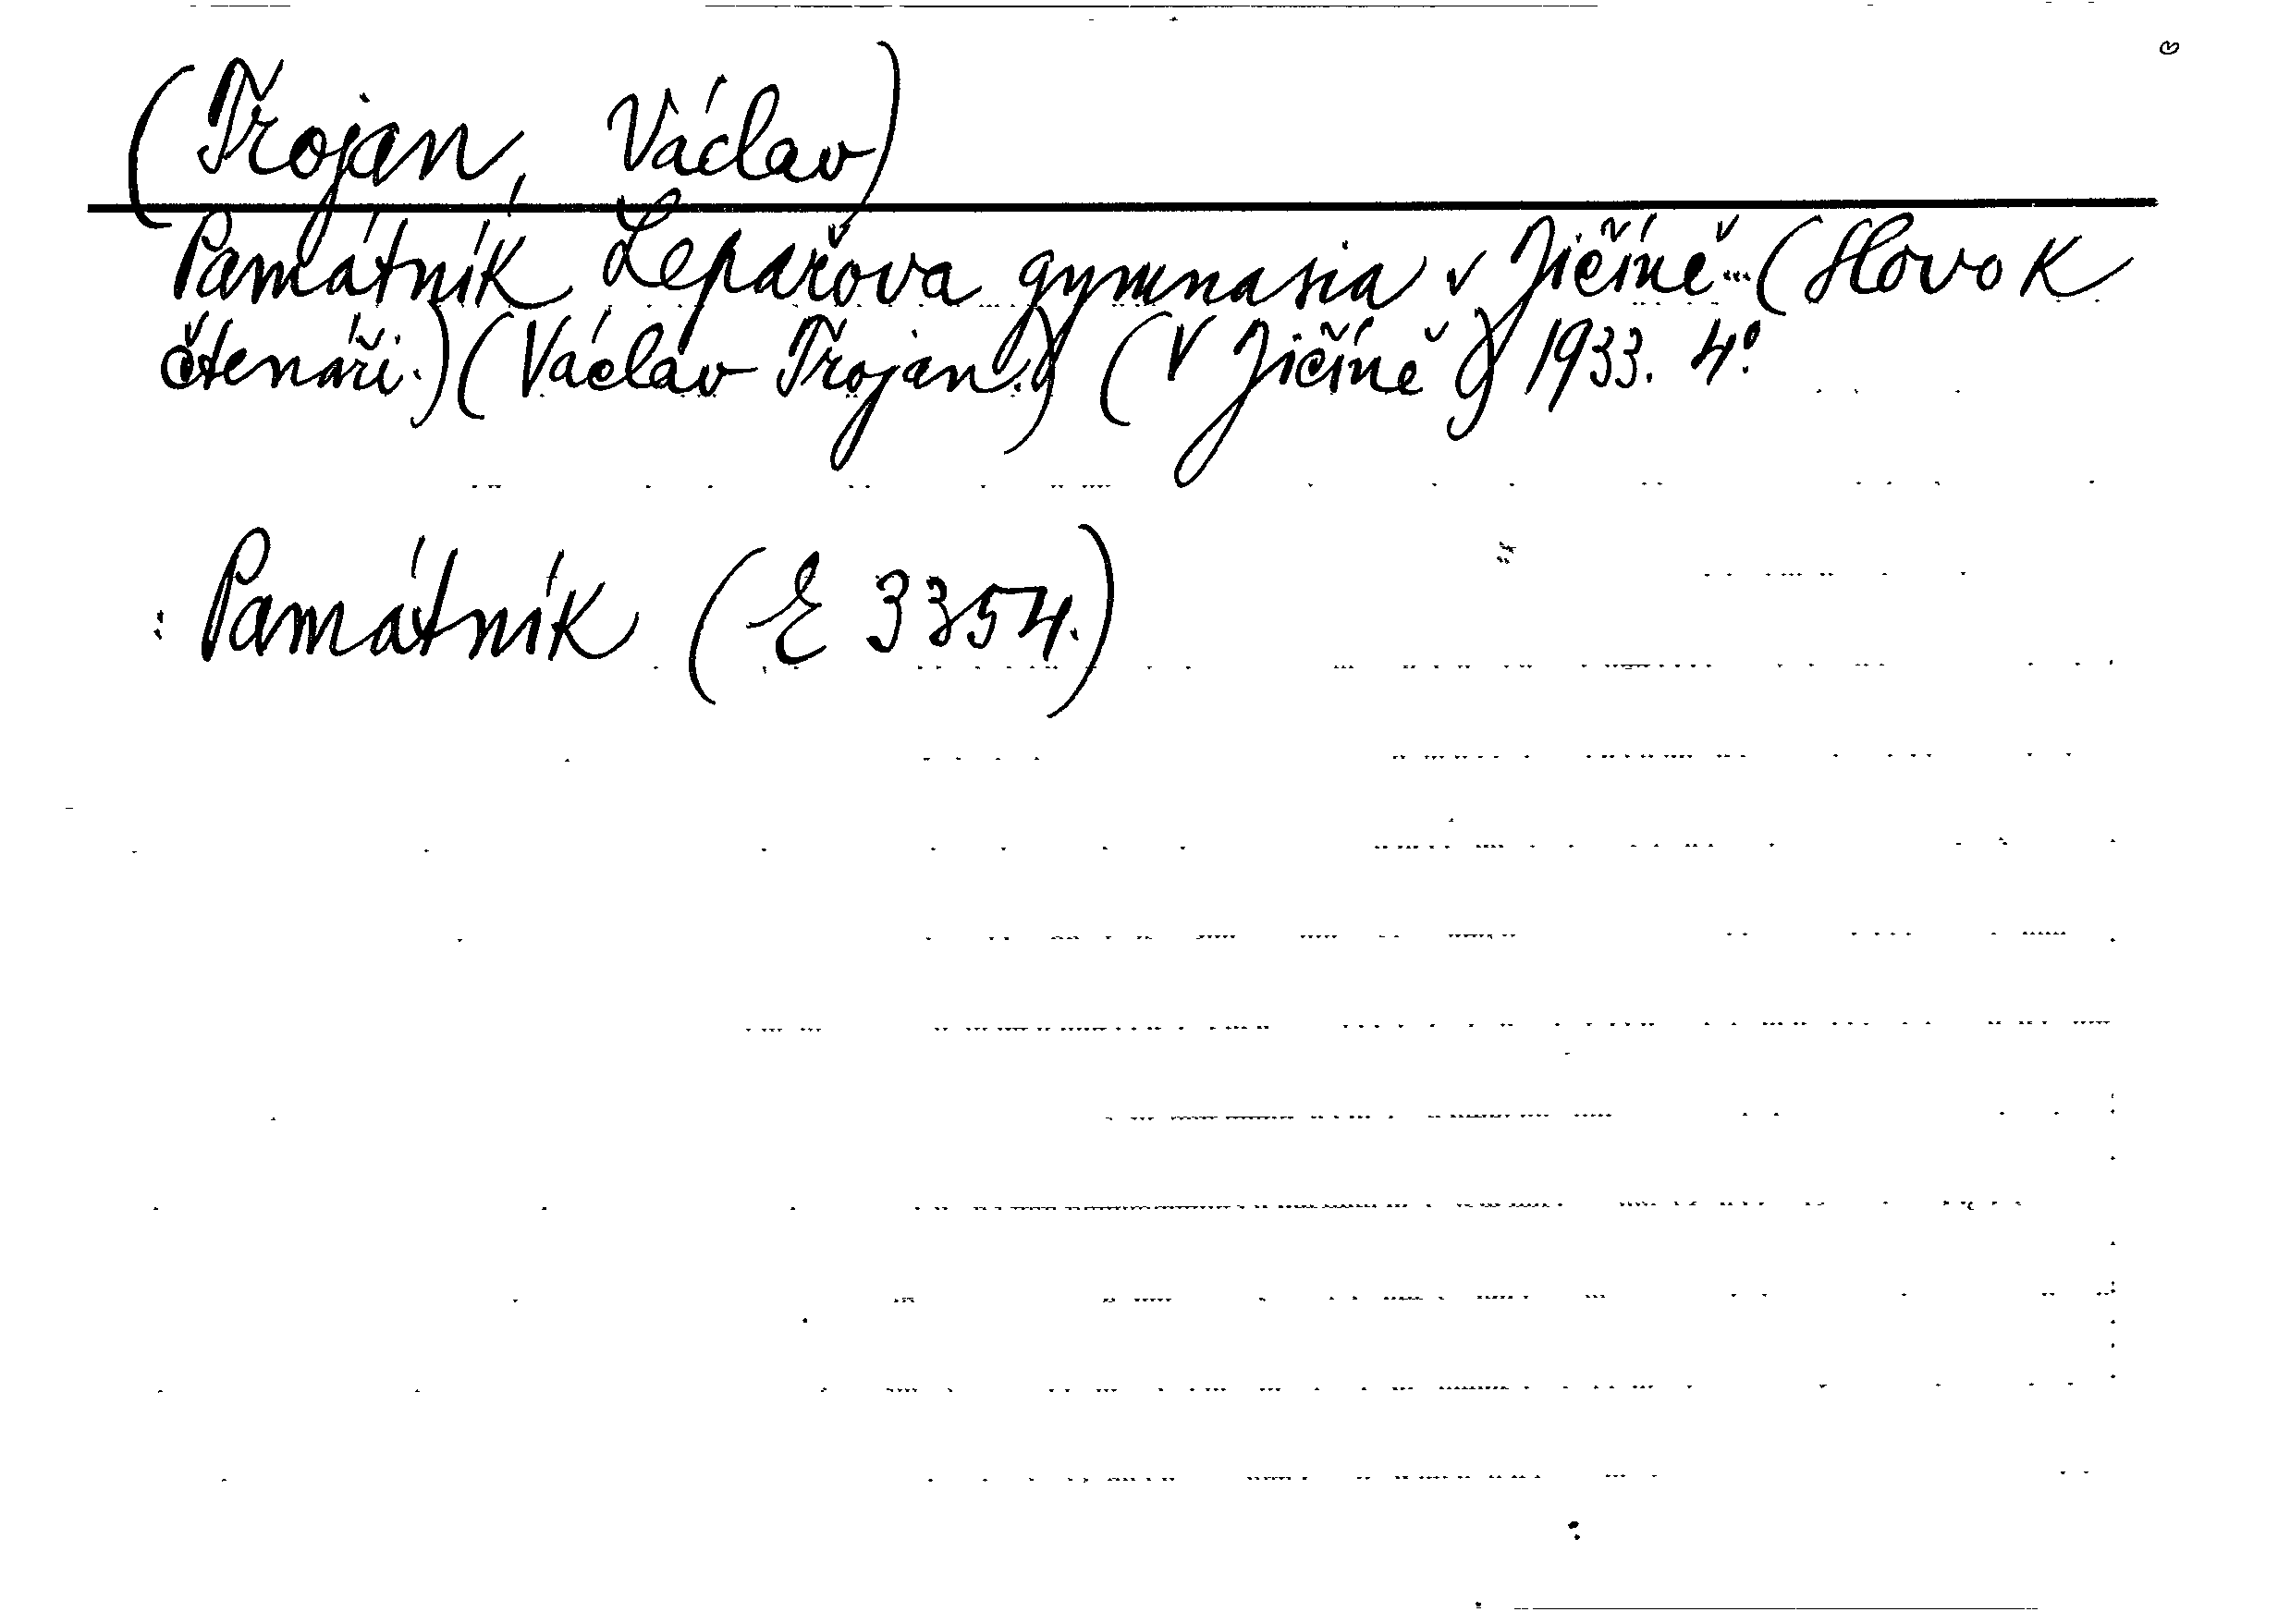 (Trojan, Václav)
Památník Lepařova gymnasia v Jičíně... (Slovo k
čtenáři.) (Václav Trojan.) (V Jičíně) 1933. 4°.
Památník (E 3354.)